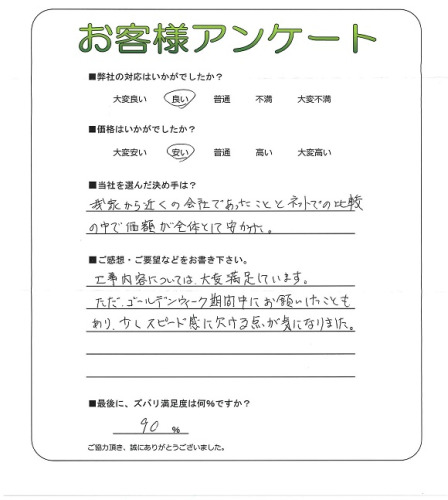 お客様アンケート
■弊社の対応はいかがでしたか？
大変良い 良い 普通 不満 大変不満
■価格はいかがでしたか？
大変安い 安い 普通 高い 大変高い
■当社を選んだ決め手は？
我家から近くの会社であったこととネットでの比較
の中で価額が全体として安かった。
■ご感想・ご要望などをお書き下さい。
工事内容については、大変満足しています。
ただ、ゴールデンウィーク期間中にお願いしたことも
あり、少しスピード感に欠ける点が気になりました。
■最後に、ズバリ満足度は何%ですか？
90 %
ご協力頂き、誠にありがとうございました。